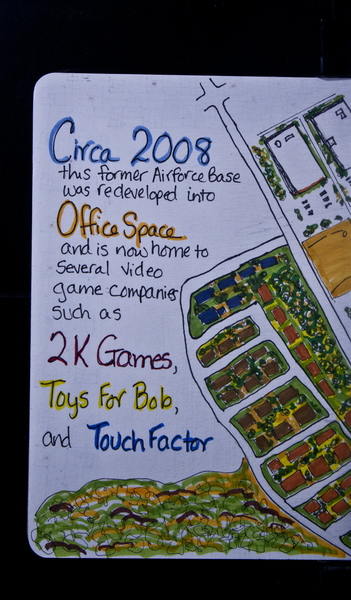 Circa 2008
this former Airforce Base
was redeveloped into
Office Space
and is now home to
Several video
game companies
such as
2K Games,
Toys For Bob,
and Touch Factor